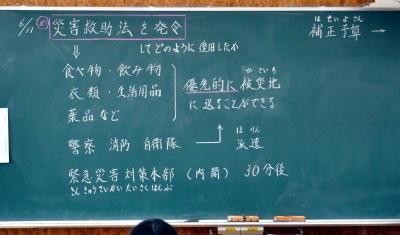 6/11 災害救助法を発令
してどのように使用したか
食べ物・飲み物
衣類・生活用品
薬品など
優先的に被災地
に送ることができる
警察 消防 自衛隊
はけん
派遣
緊急災害対策本部 (内閣) 30分後
きんきゅうさいがいたいさくほんぶ
ほせいよさん
補正予算 →